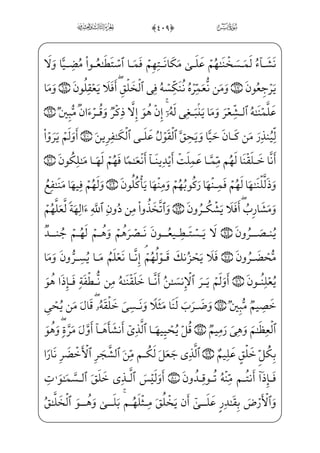 سورة يس ﴿٤٠٩﴾ الجزء الثالث والعشرون
نَشَآءُ لَمَسَخْنَٰهُمْ عَلَىٰ مَكَانَتِهِمْ فَمَا ٱسْتَطَٰعُوا۟ مُضِيًّا وَلَا
يَرْجِعُونَ ۝ وَمَن نُّعَمِّرْهُ نُنَكِّسْهُ فِى ٱلْخَلْقِ ۖ أَفَلَا يَعْقِلُونَ ۝ وَمَا
عَلَّمْنَٰهُ ٱلشِّعْرَ وَمَا يَنۢبَغِى لَهُۥٓ ۚ إِنْ هُوَ إِلَّا ذِكْرٌ وَقُرْءَانٌ مُّبِينٌ ۝
لِّيُنذِرَ مَن كَانَ حَيًّا وَيَحِقَّ ٱلْقَوْلُ عَلَى ٱلْكَٰفِرِينَ ۝ أَوَلَمْ يَرَوْا۟
أَنَّا خَلَقْنَا لَهُم مِّمَّا عَمِلَتْ أَيْدِينَآ أَنْعَٰمًا فَهُمْ لَهَا مَٰلِكُونَ ۝
وَذَلَّلْنَٰهَا لَهُمْ فَمِنْهَا رَكُوبُهُمْ وَمِنْهَا يَأْكُلُونَ ۝ وَلَهُمْ فِيهَا مَنَٰفِعُ
وَمَشَارِبُ ۖ أَفَلَا يَشْكُرُونَ ۝ وَٱتَّخَذُوا۟ مِن دُونِ ٱللَّهِ ءَالِهَةً لَّعَلَّهُمْ
يُنصَرُونَ ۝ لَا يَسْتَطِيعُونَ نَصْرَهُمْ وَهُمْ لَهُمْ جُندٌ
مُّحْضَرُونَ ۝ فَلَا يَحْزُنكَ قَوْلُهُمْ ۘ إِنَّا نَعْلَمُ مَا يُسِرُّونَ وَمَا
يُعْلِنُونَ ۝ أَوَلَمْ يَرَ ٱلْإِنسَٰنُ أَنَّا خَلَقْنَٰهُ مِن نُّطْفَةٍ فَإِذَا هُوَ
خَصِيمٌ مُّبِينٌ ۝ وَضَرَبَ لَنَا مَثَلًا وَنَسِىَ خَلْقَهُۥ ۖ قَالَ مَن يُحْىِ
ٱلْعِظَٰمَ وَهِىَ رَمِيمٌ ۝ قُلْ يُحْيِيهَا ٱلَّذِىٓ أَنشَأَهَآ أَوَّلَ مَرَّةٍ ۖ وَهُوَ
بِكُلِّ خَلْقٍ عَلِيمٌ ۝ ٱلَّذِى جَعَلَ لَكُم مِّنَ ٱلشَّجَرِ ٱلْأَخْضَرِ نَارًا
فَإِذَآ أَنتُم مِّنْهُ تُوقِدُونَ ۝ أَوَلَيْسَ ٱلَّذِى خَلَقَ ٱلسَّمَٰوَٰتِ
وَٱلْأَرْضَ بِقَٰدِرٍ عَلَىٰٓ أَن يَخْلُقَ مِثْلَهُم ۚ بَلَىٰ وَهُوَ ٱلْخَلَّٰقُ